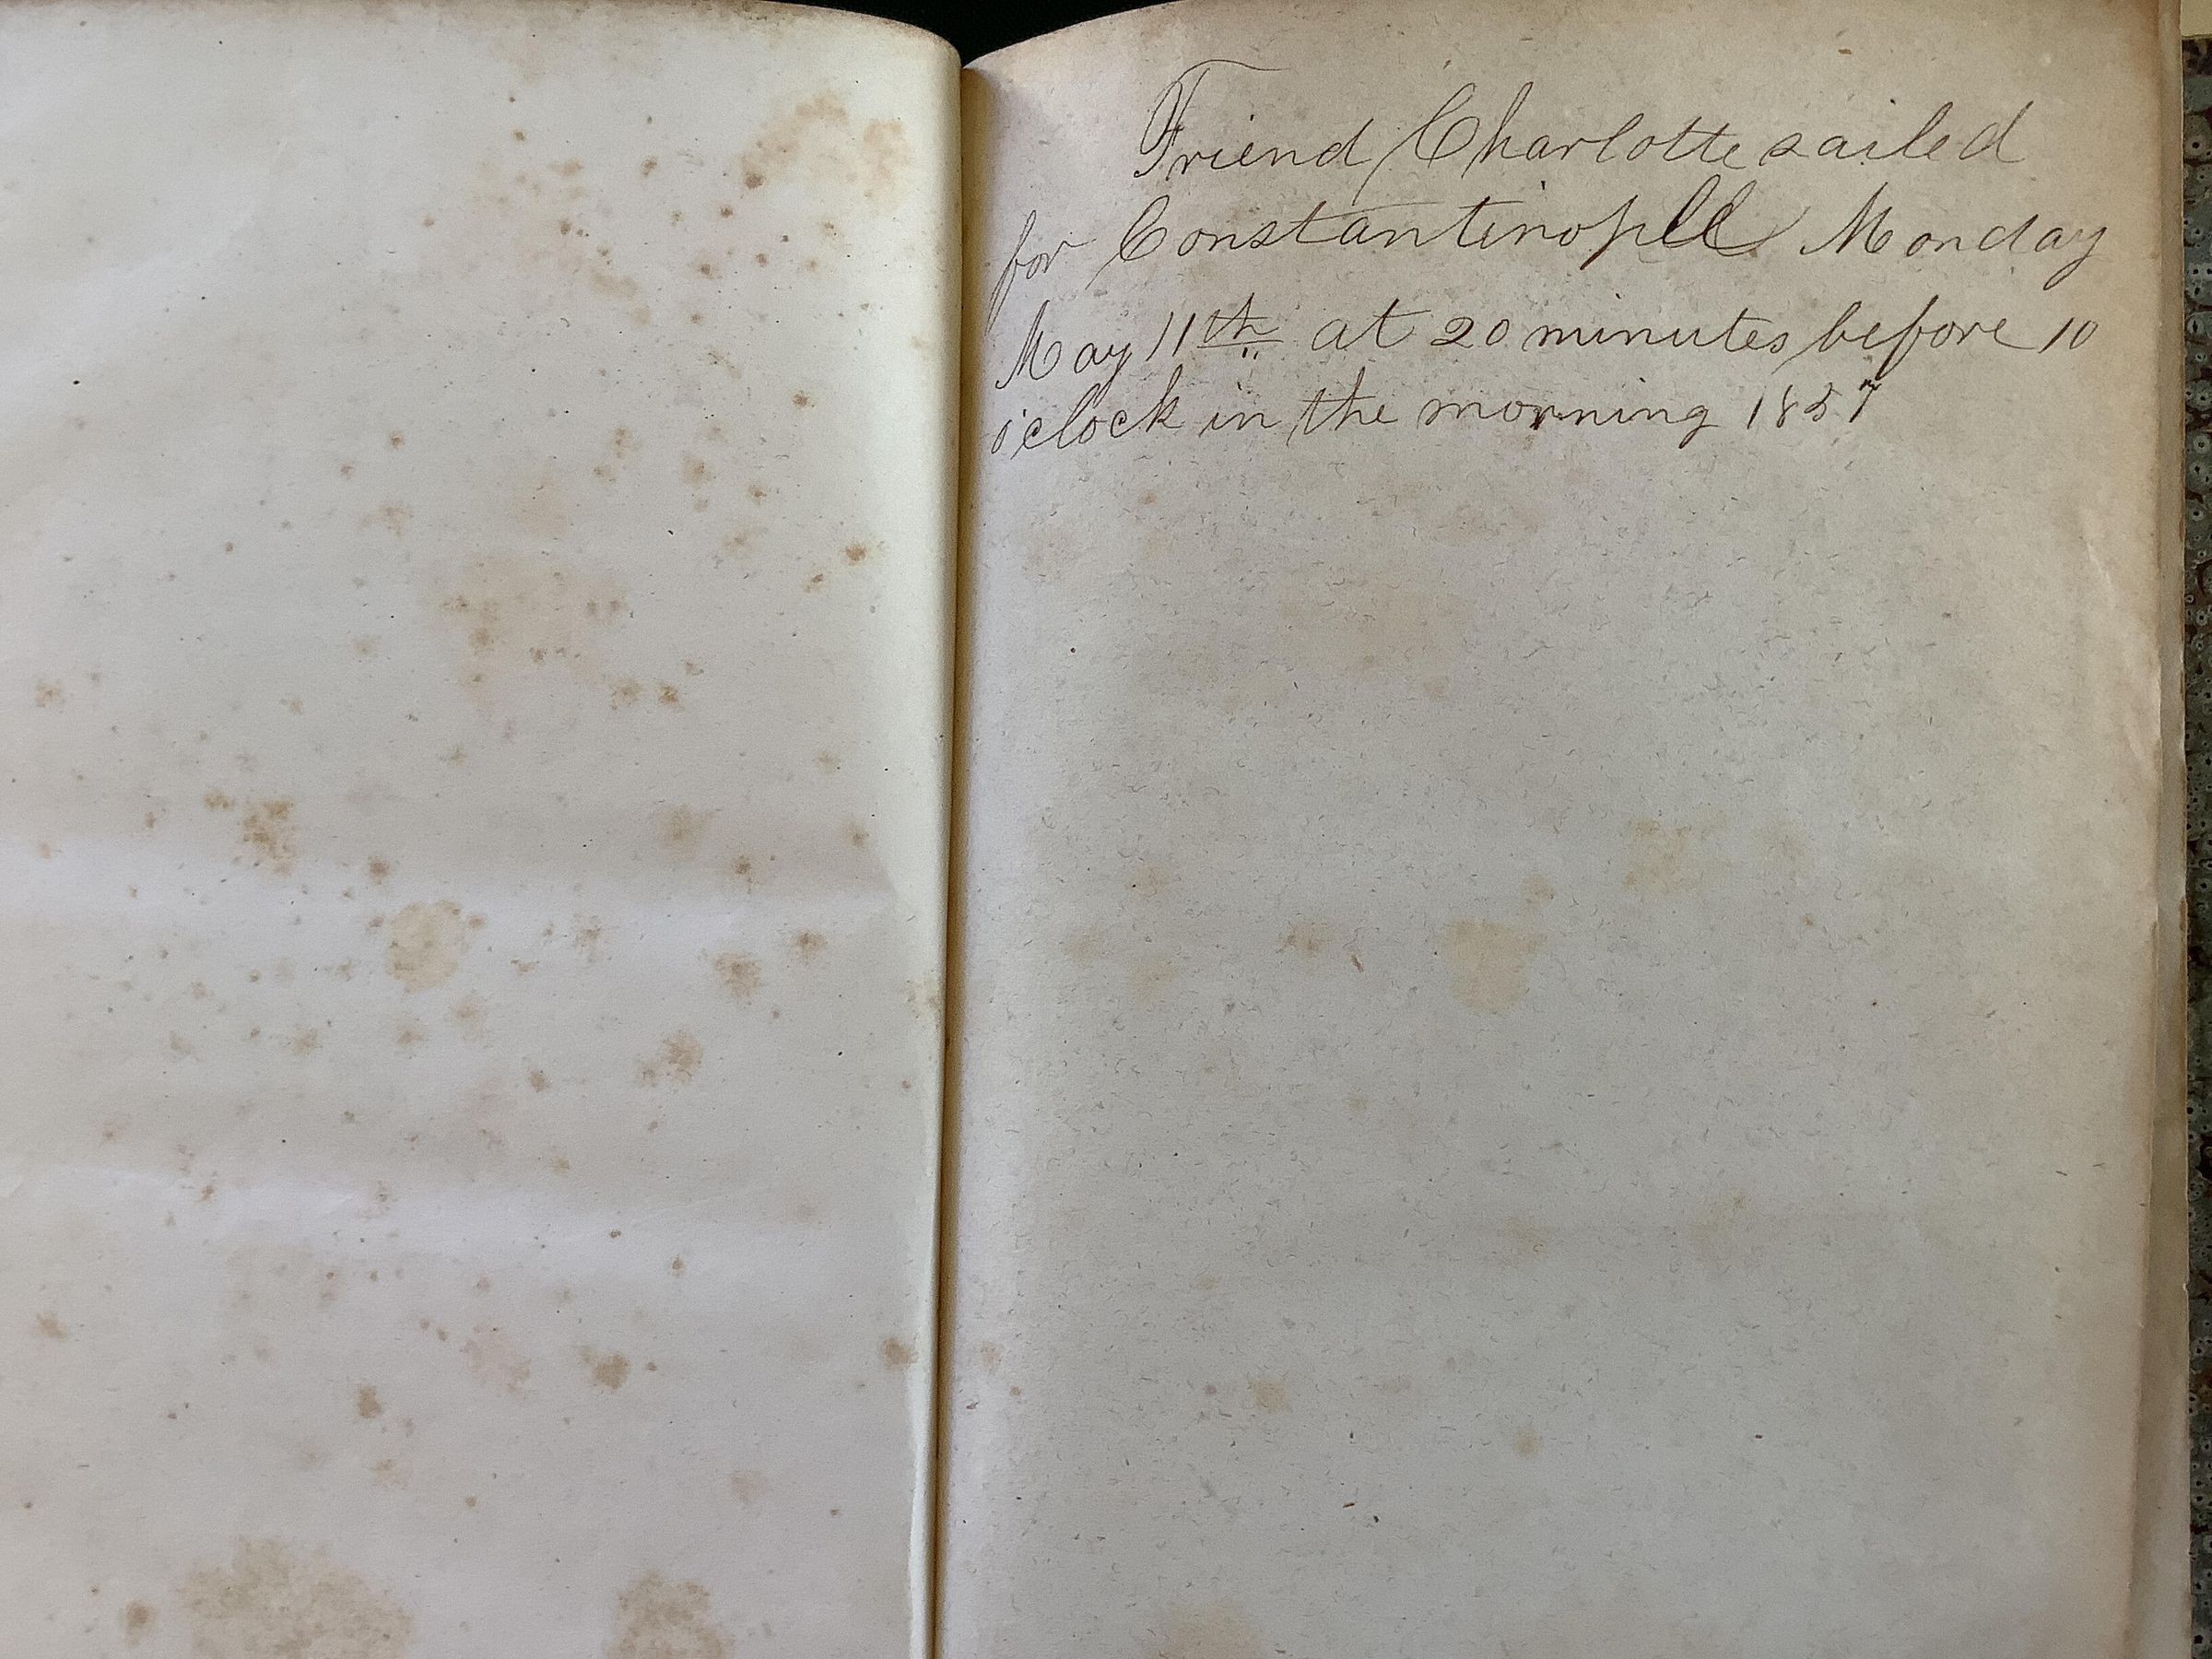 Friend Charlotte sailed
for Constantinople Monday
May 11th at 20 minutes before 10
o'clock in the morning 1857